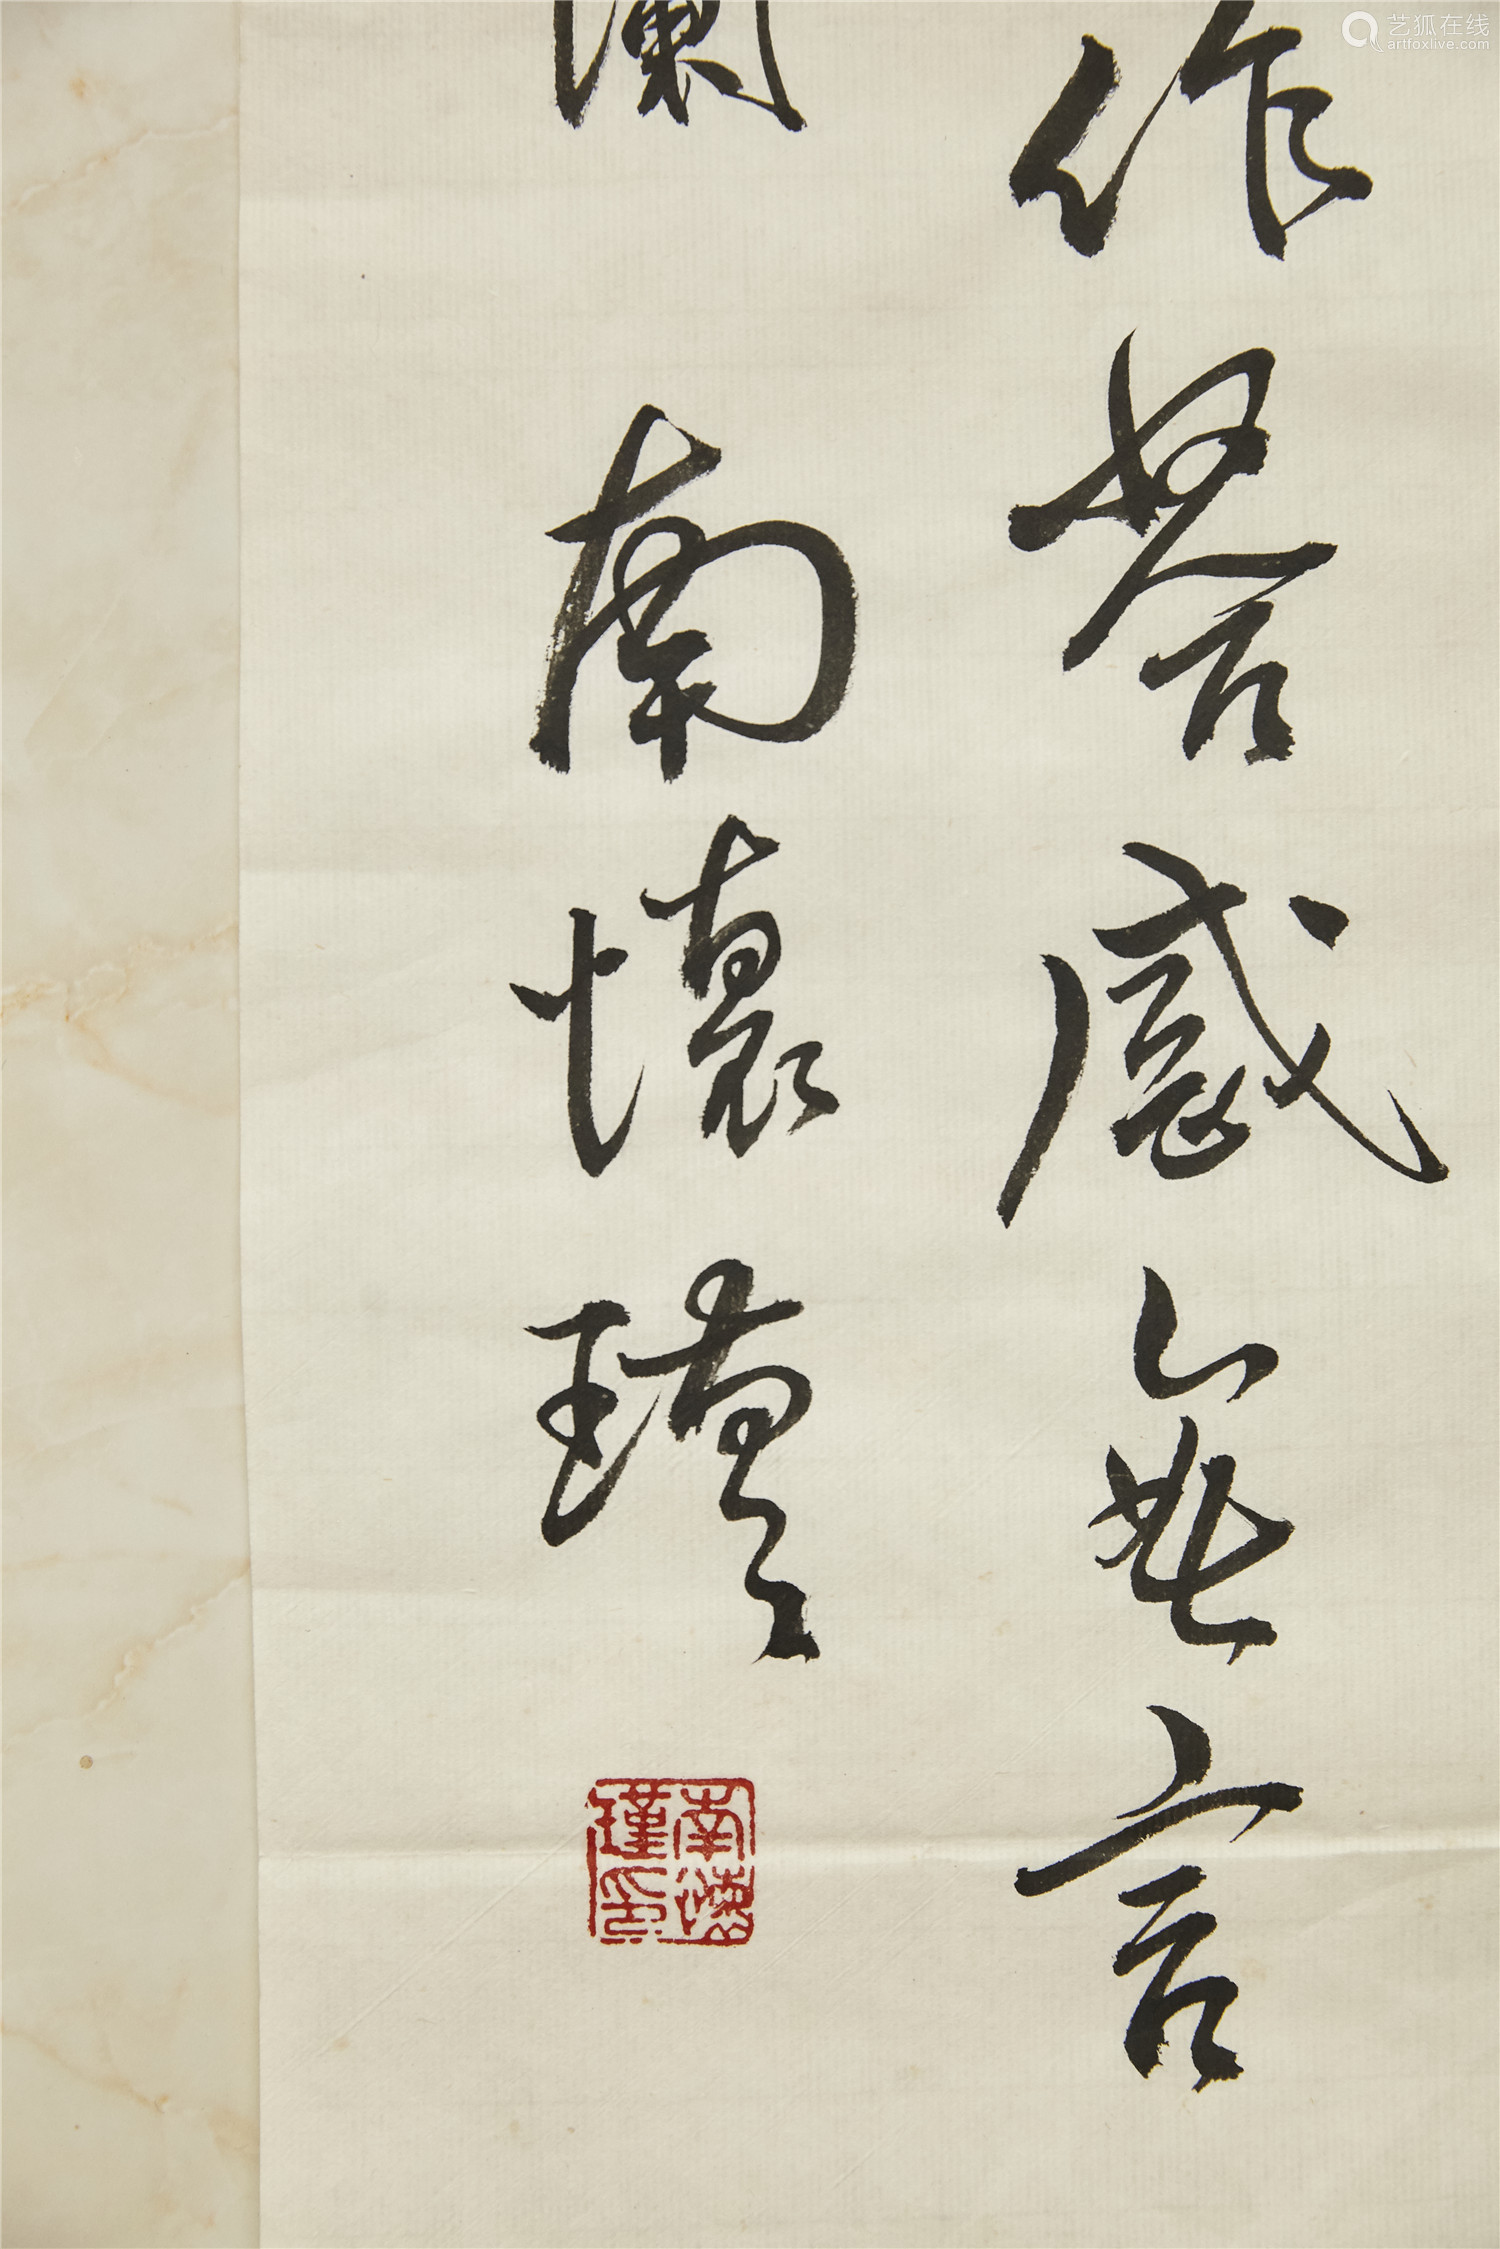 作荅感無言
南懷瑾
南懷瑾印
艺狐在线
artfoxlive.com